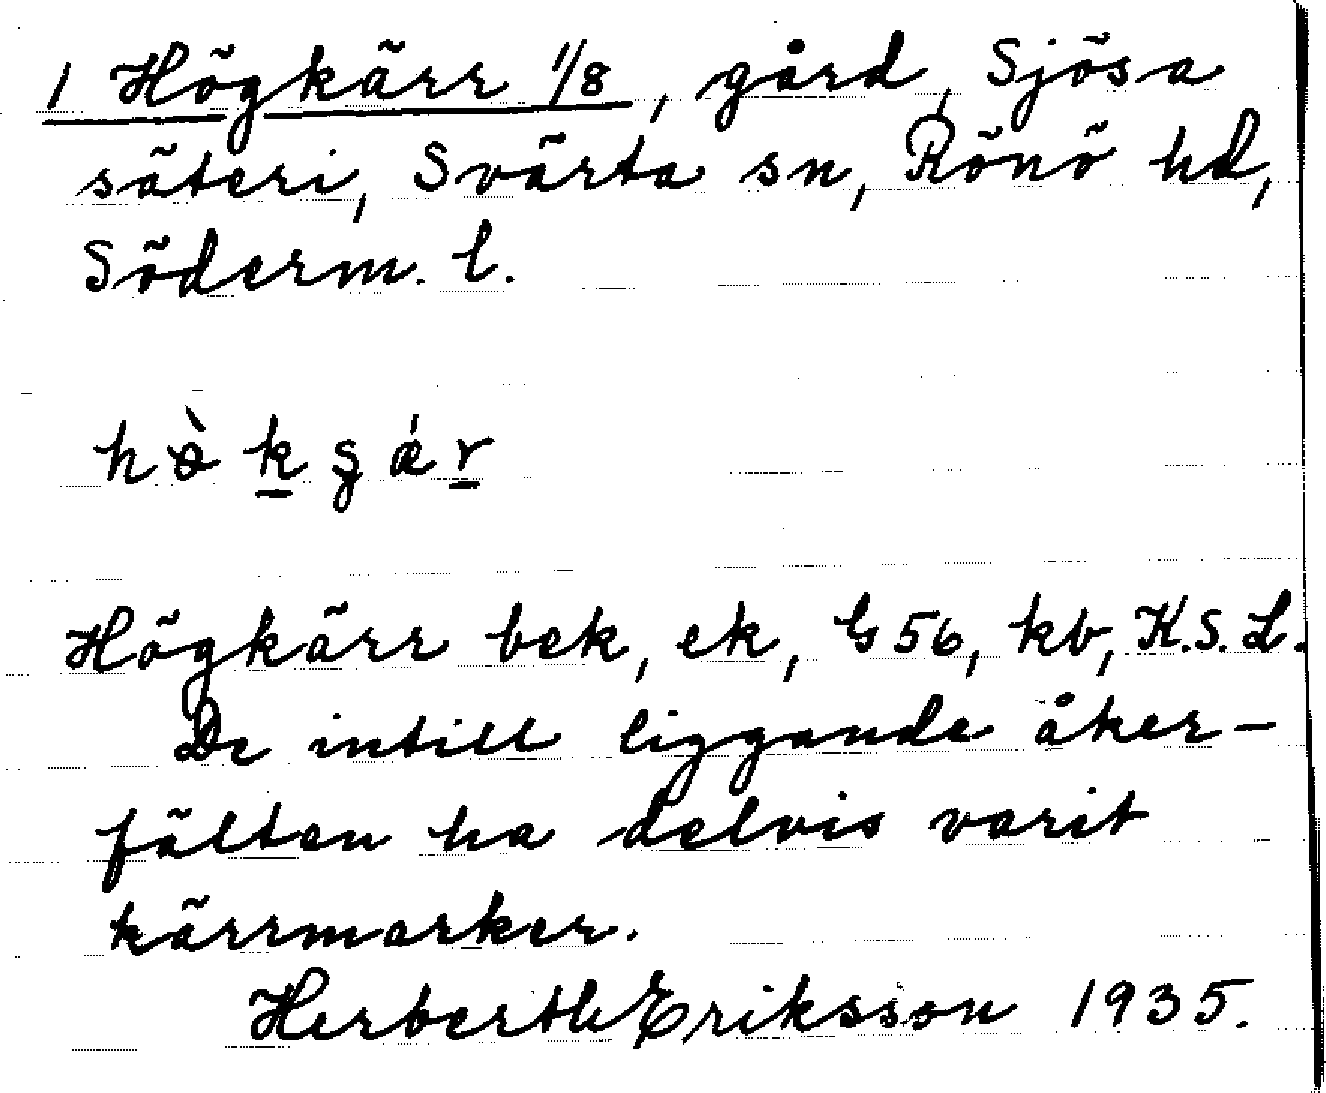 1 Högkärr 1/8, gård, Sjösa
säteri, Svärta sn, Rönö hd,
Söderm. l.
Högkärr bek, ek, G 56, kb, K.S.L.
De intill liggande åker-
fälten ha delvis varit
kärrmarker.
Herberth Eriksson 1935.